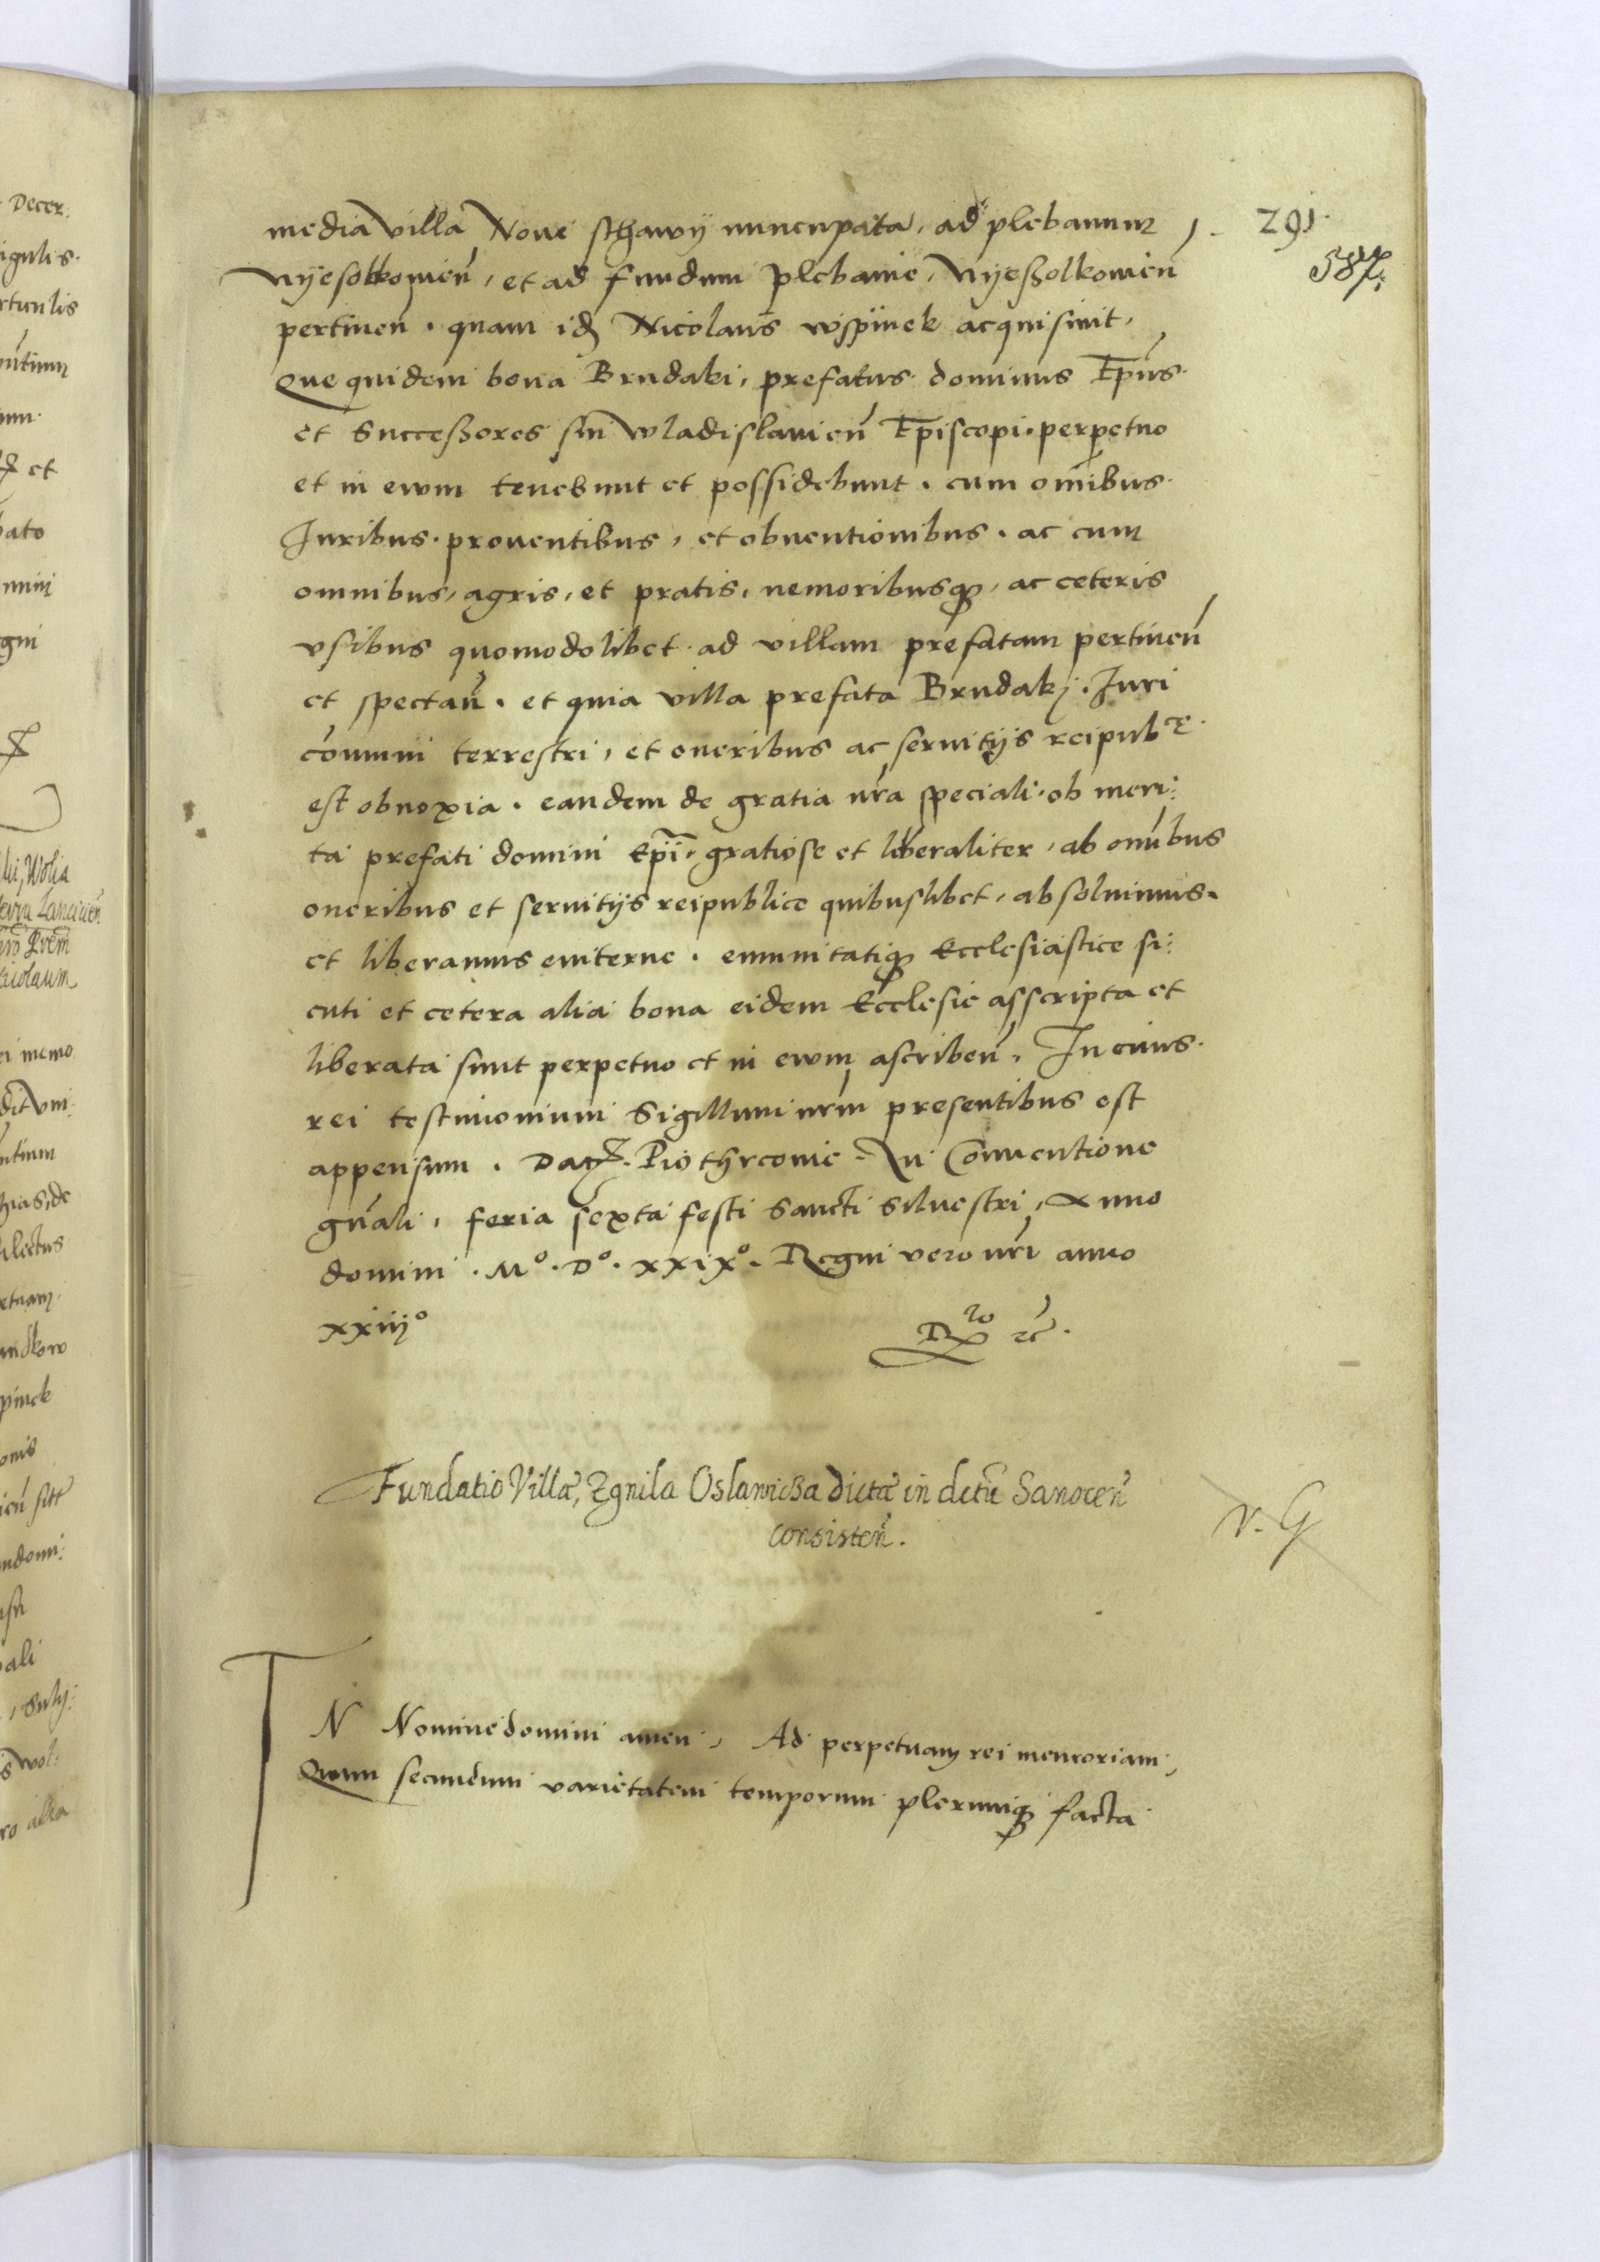 291.
587.
media villa Nove schawy nuncupata, ad plebanum
Wyesolkomien̄, et ad fundum plebanie, Wyeszolkomien̄
pertinen̄. quam id̄ Nicolaus wspinek acquisiuit,
Que quidem bona Brudaki, prefatus dominus Ep̄us
et Successores sui wladislauien̄ Episcopi. perpetuo
et in ewm tenebunt et possidebunt. cum om̄ibus
Juribus. prouentibus, et obuentionibus. ac cum
omnibus, agris, et pratis, nemoribusq3, ac ceteris
vsibus quomodolibet ad villam prefatam pertinen̄
et spectan̄. et quia villa prefata Brudakj. Juri
com̄uni terrestri, et oneribus ac seruitijs reipubce
est obnoxia. eandem de gratia nr̄a speciali. ob meri:
ta prefati domini Ep̄i. gratiose et liberaliter, ab om̄ibus
oneribus et seruitijs reipublice quibuslibet, absoluimus.
et liberamus euiterne. emunitatiq3 Ecclesiastice si:
cuti et cetera alia bona eidem Ecclesie asscripta et
liberata sunt perpetuo et in ewm ascriben̄. In cuius
rei testimonium Sigillum nr̄m presentibus est
appensum. Dat. Piothrcouie. In Conuentione
gn̄ali, feria sexta festi Sancti Siluestri, Anno
domini. Mo. Do. xxixo. Regni vero nr̄i anno
xxiiijo
Rro etc̄.
Fundatio Villæ, Zgnila Oslawicza dictæ in dictū Sanocen̄
consisten̄.
v. G
IN Nomine domini amen, Ad perpetuam rei memoriam,
Quum secundum varietatem temporum plerumq3 facta